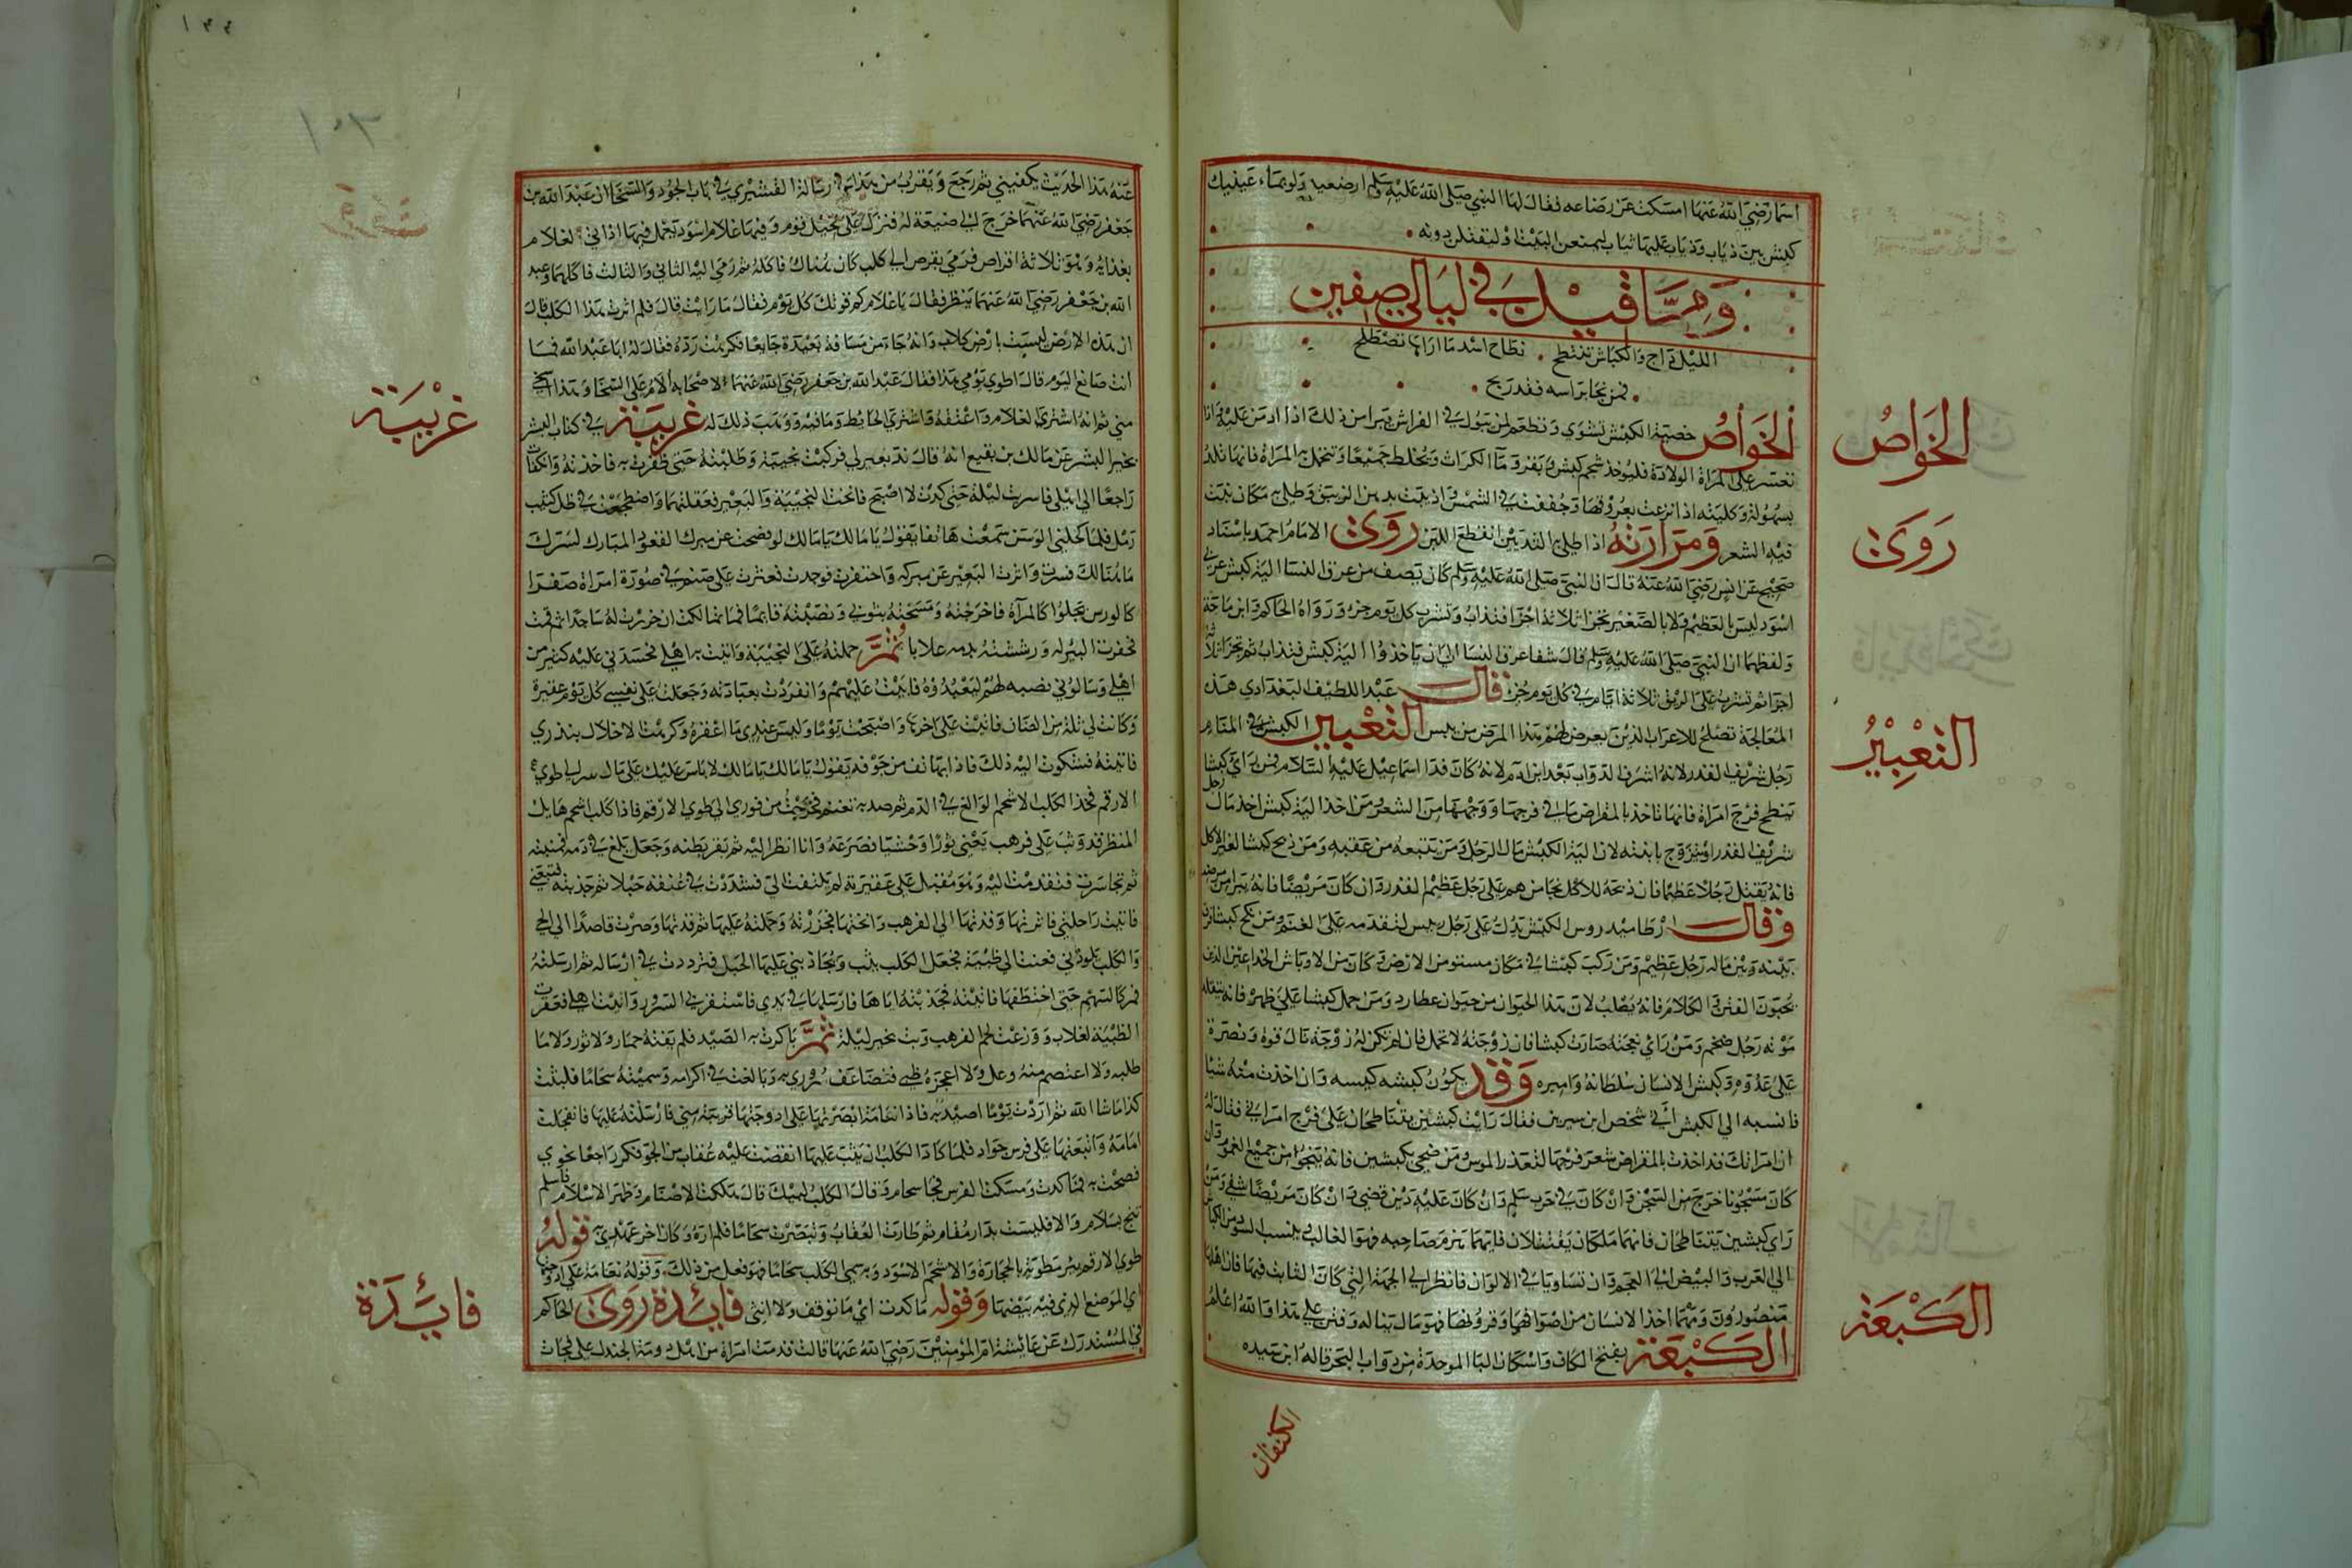 اسما رضي الله عنها امسكت عن رضاعه فقال لها النبي صلى الله عليه وسلم ارضعيه ولو بماء عينيك
كبش بين ذياب وذياب عليها ثياب ليمنعن البيت او ليقتلن دونه
ومما قيل في ليالي صفين
الليل داج والكباش تنتطح نطاح اسد ما اراها تصطلح
فمن نجا براسه فقد ربح
الخواص خصية الكبش تشوى وتطعم لمن يبول في الفراش يبرا من ذلك اذا ادمن عليه واذا
تعسر على المراة الولادة فليوخذ شحم كبش و بقر وما الكراث ويخلط جميعا وتتحمل به المراة فانها تلد
بسهولة وكليته اذا نزعت بعروقها وجففت في الشمس واذيبت بدهن الزيبق وطلي به مكان نبت
فيه الشعر ومرارته اذا طلي بها الثديين انقطع اللبن روى الامام احمد باسناد
صحيح عن انس رضي الله عنه قال ان النبي صلى الله عليه وسلم كان يصف من عرق النسا الية كبش عربي
اسود ليس بالعظيم ولا بالصغير تجزا ثلاثة اجزا فتذاب وتشرب كل يوم جزء ورواه الحاكم وابن ماجة
ولفظهما ان النبي صلى الله عليه وسلم قال شفا عرق النسا ان ياخذوا الية كبش فتذاب ثم تجزا ثلاثة
اجزا ثم تشرب على الريق ثلاثة ايام في كل يوم جز قال عبد اللطيف البغدادي هذه
المعالجة تصلح للاعراب الذين يعرض لهم هذا المرض من يبس التعبير الكبش في المنام
رجل شريف القدر لانه اشرف الدواب بعد ابن ادم لانه كان فدا اسماعيل عليه السلام فمن راى كبشا
ينطح فرج امراة فانها تاخذ بالمقراض ما في فرجها ومن اخذ الية كبش اخذ مال رجل
شريف القدر او تزوج بابنته لان الية الكبش مال الرجل ومن يتبعه من عقبه ومن ذبح كبشا لغير الاكل
فانه يقتل رجلا عظيما فان ذبحه للاكل نجا من هم على رجل عظيم القدر وان كان مريضا فانه يبرا من مرضه
وقال ارطاميدروس الكبش يدل على رجل رييس لتقدمه على الغنم ومن
بينه وبين ماله رجل عظيم ومن ركب كبشا في مكان مستو من الارض وكان من الاوباش الخداعين الذين
يحبون الكلام فانه يصلب لان هذا الحيوان من حيوان عطارد ومن حمل كبشا على ظهره فانه يتقلد
مونة رجل ضخم ومن راى نعجته صارت كبشا فان زوجته لا تحمل فان لم تكن له زوجة نال قوة ونصرة
على عدوه وكبش الانسان سلطانه واميره وقد يكون كبشه كيسه وان اخذت منه شيا
فانسبه الى الكبش اتى شخص ابن سيرين فقال رايت كبشين يتناطحان على فرج امراتي فقال له
ان امراتك قد اخذت بالمقراض شعر فرجها لتعذر الموس ومن ضحى بكبشين فانه ينجوا من جميع الهموم وان
كان مسجونا خرج من السجن وان كان في حرب سلم وان كان عليه دين قضي وان كان مريضا شفي ومن
راى كبشين يتناطحان فانهما ملكان يقتتلان فايهما هزم صاحبه فهو الغالب ينسب السود من الكباش
الى العرب والبيض الى العجم وان تساويا في الالوان فانظر الى الجهة التي كان الغالب فيها فان اهلها
منصورون ومهما اخذ الانسان من اصوافها وقرونها فهو مال يناله وقس على هذا والله اعلم
الكبعة بفتح الكاف واسكان البا الموحدة من دواب البحر قاله ابن سيده
الخواص
روى
التعبير
الكبعة
عنه هذا الحديث يكفيني ثم رجع ويقرب من هذا ما في رسالة القشيري في باب الجود والسخا ان عبد الله بن
جعفر رضي الله عنهما خرج الى ضيعة له فنزل على نخيل قوم وفيها غلام اسود يعمل فيها اذ اتي الغلام
بغذايه وهو ثلاثة اقراص فرمى بقرص الى كلب كان هناك فاكله ثم رمى اليه الثاني والثالث فاكلهما وعبد
الله بن جعفر رضي الله عنهما ينظر فقال يا غلام كم قوتك كل يوم فقال ما رايت قال فلم اثرت هذا الكلب قال
ان هذه الارض ليست بارض كلاب وانه جاء من مسافة بعيدة جايعا فكرهت رده فقال له ابا عبد الله فما
انت صانع اليوم قال اطوي يومي هذا فقال عبد الله بن جعفر رضي الله عنهما لاصحابه الام على السخا وهذا اسخى
مني ثم انه اشترى الغلام واعتقه واشترى الحايط وما فيه ووهب ذلك له غريبة في كتاب البشر
بخير البشر عن مالك بن نقيع انه قال ند بعير لي فركبت نجيبة وطلبته حتى ظفرت به فاخذته وانكفات
راجعا الى اهلي فاسريت ليلة حتى كدت لا اصبح فانخت النجيبة والبعير فعقلتهما واضطجعت في ظل كثيب
رمل فلما كحلني الوسن سمعت هاتفا يقول يا مالك يا مالك لو فحصت عن مبرك القعود المبارك لسرك
ما هنالك فسرت واثرت البعير عن مبركه واحتفرت فوجدت فعثرت على صنم في صورة امراة صفرا
كالورس مجلوا كالمرآة فاخرجته ومسحته بثوبي ونصبته قايما فما تمالكت ان خررت له ساجدا ثم قمت
فنحرت البعير له ورششته بدمه غلابا ثم حملته على النجيبة واتيت به اهلي فحسدني عليه كثير من
اهلي وسالوني نصبه لهم ليعبدوه فابيت عليهم وانفردت بعبادته وجعلت على نفسي كل يوم عقيرة
وكانت لي ثلة من الضان فاتيت على اخرها واصبحت يوما وليس عندي ما اعقره وكرهت الاخلال بنذري
فاتيته فشكوت اليه ذلك فاذا بهاتف من جوفه يقول يا مالك يا مالك لا باس عليك على مال سر الى طوي
الارقم فخذ الكلب الاسحم الوالغ في الدم ثم صد به تغنم فخرجت من فوري الى طوي الارقم فاذا كلب اسحم هايل
المنظر قد وثب على قرهب يعني ثورا وحشيا فصرعه وانا انظر اليه ثم بقر بطنه وجعل يلغ في دمه فتهيبته
ثم تجاسرت فتقدمت اليه وهو مقبل على عقيرته لم يلتفت الي فشددت في عنقه حبلا ثم جذبته فتبعني
فاتيت راحلتي فاثرتها وقدتها الى القرهب وانختها فجزرته وحملته عليها ثم قدتها وصرت قاصدا الى الحي
والكلب يلوذ بي فعنت لي ظبية فجعل الكلب يثب ويجاذبني عليها الحبل فترددت في ارساله ثم ارسلته
فمر كالسهم حتى اختطفها فاتيته فجذبته اياها فارسلها في يدي فاستفزني السرور واتيت اهلي فعقرت
الظبية لغلاب ووزعت لحم القرهب وبت بخير ليلة ثم باكرت به الصيد فلم يفته حمار ولا ثور ولا ما
طلبه ولا اعتصم منه وعل ولا اعجزه ظبي فتضاعف سروري به وبالغت في اكرامه وسميته سحاما فلبثت
كذا ما شا الله ثم اردت يوما اصيد به فاذا نعامة ابصرتها على ادوحتها قريبة مني فارسلته عليها فانفجلت
امامه واتبعتها على فرس جواد فلما كاد الكلب ان يثب عليها انقضت عليه عقاب من الجو فكر راجعا نحوي
فصحت به فما كدت ومسكت الفرس فجا سحام وقال الكلب لبيك قال هلكت الاصنام وظهر الاسلام فاسلم
تنج بسلام والا فليست بدار مقام ثم طارت العقاب وتبصرت سحاما فلم اره وكان اخر عهدي به قوله
طوى الارقم بير مطوية بالحجارة والاسحم الاسود وبه سمي الكلب سحاما فهو فعل من ذلك وقوله نعامة على ادوحتها
اي الموضع الذي فيه بيضها وقوله ما كدت اي ما توقف ولا انثنى فايدة روى الحاكم
في المستدرك عن عائشة ام المؤمنين رضي الله عنها قالت قدمت امراة من اهل دومة الجندل علي فجات
غريبة
فايدة